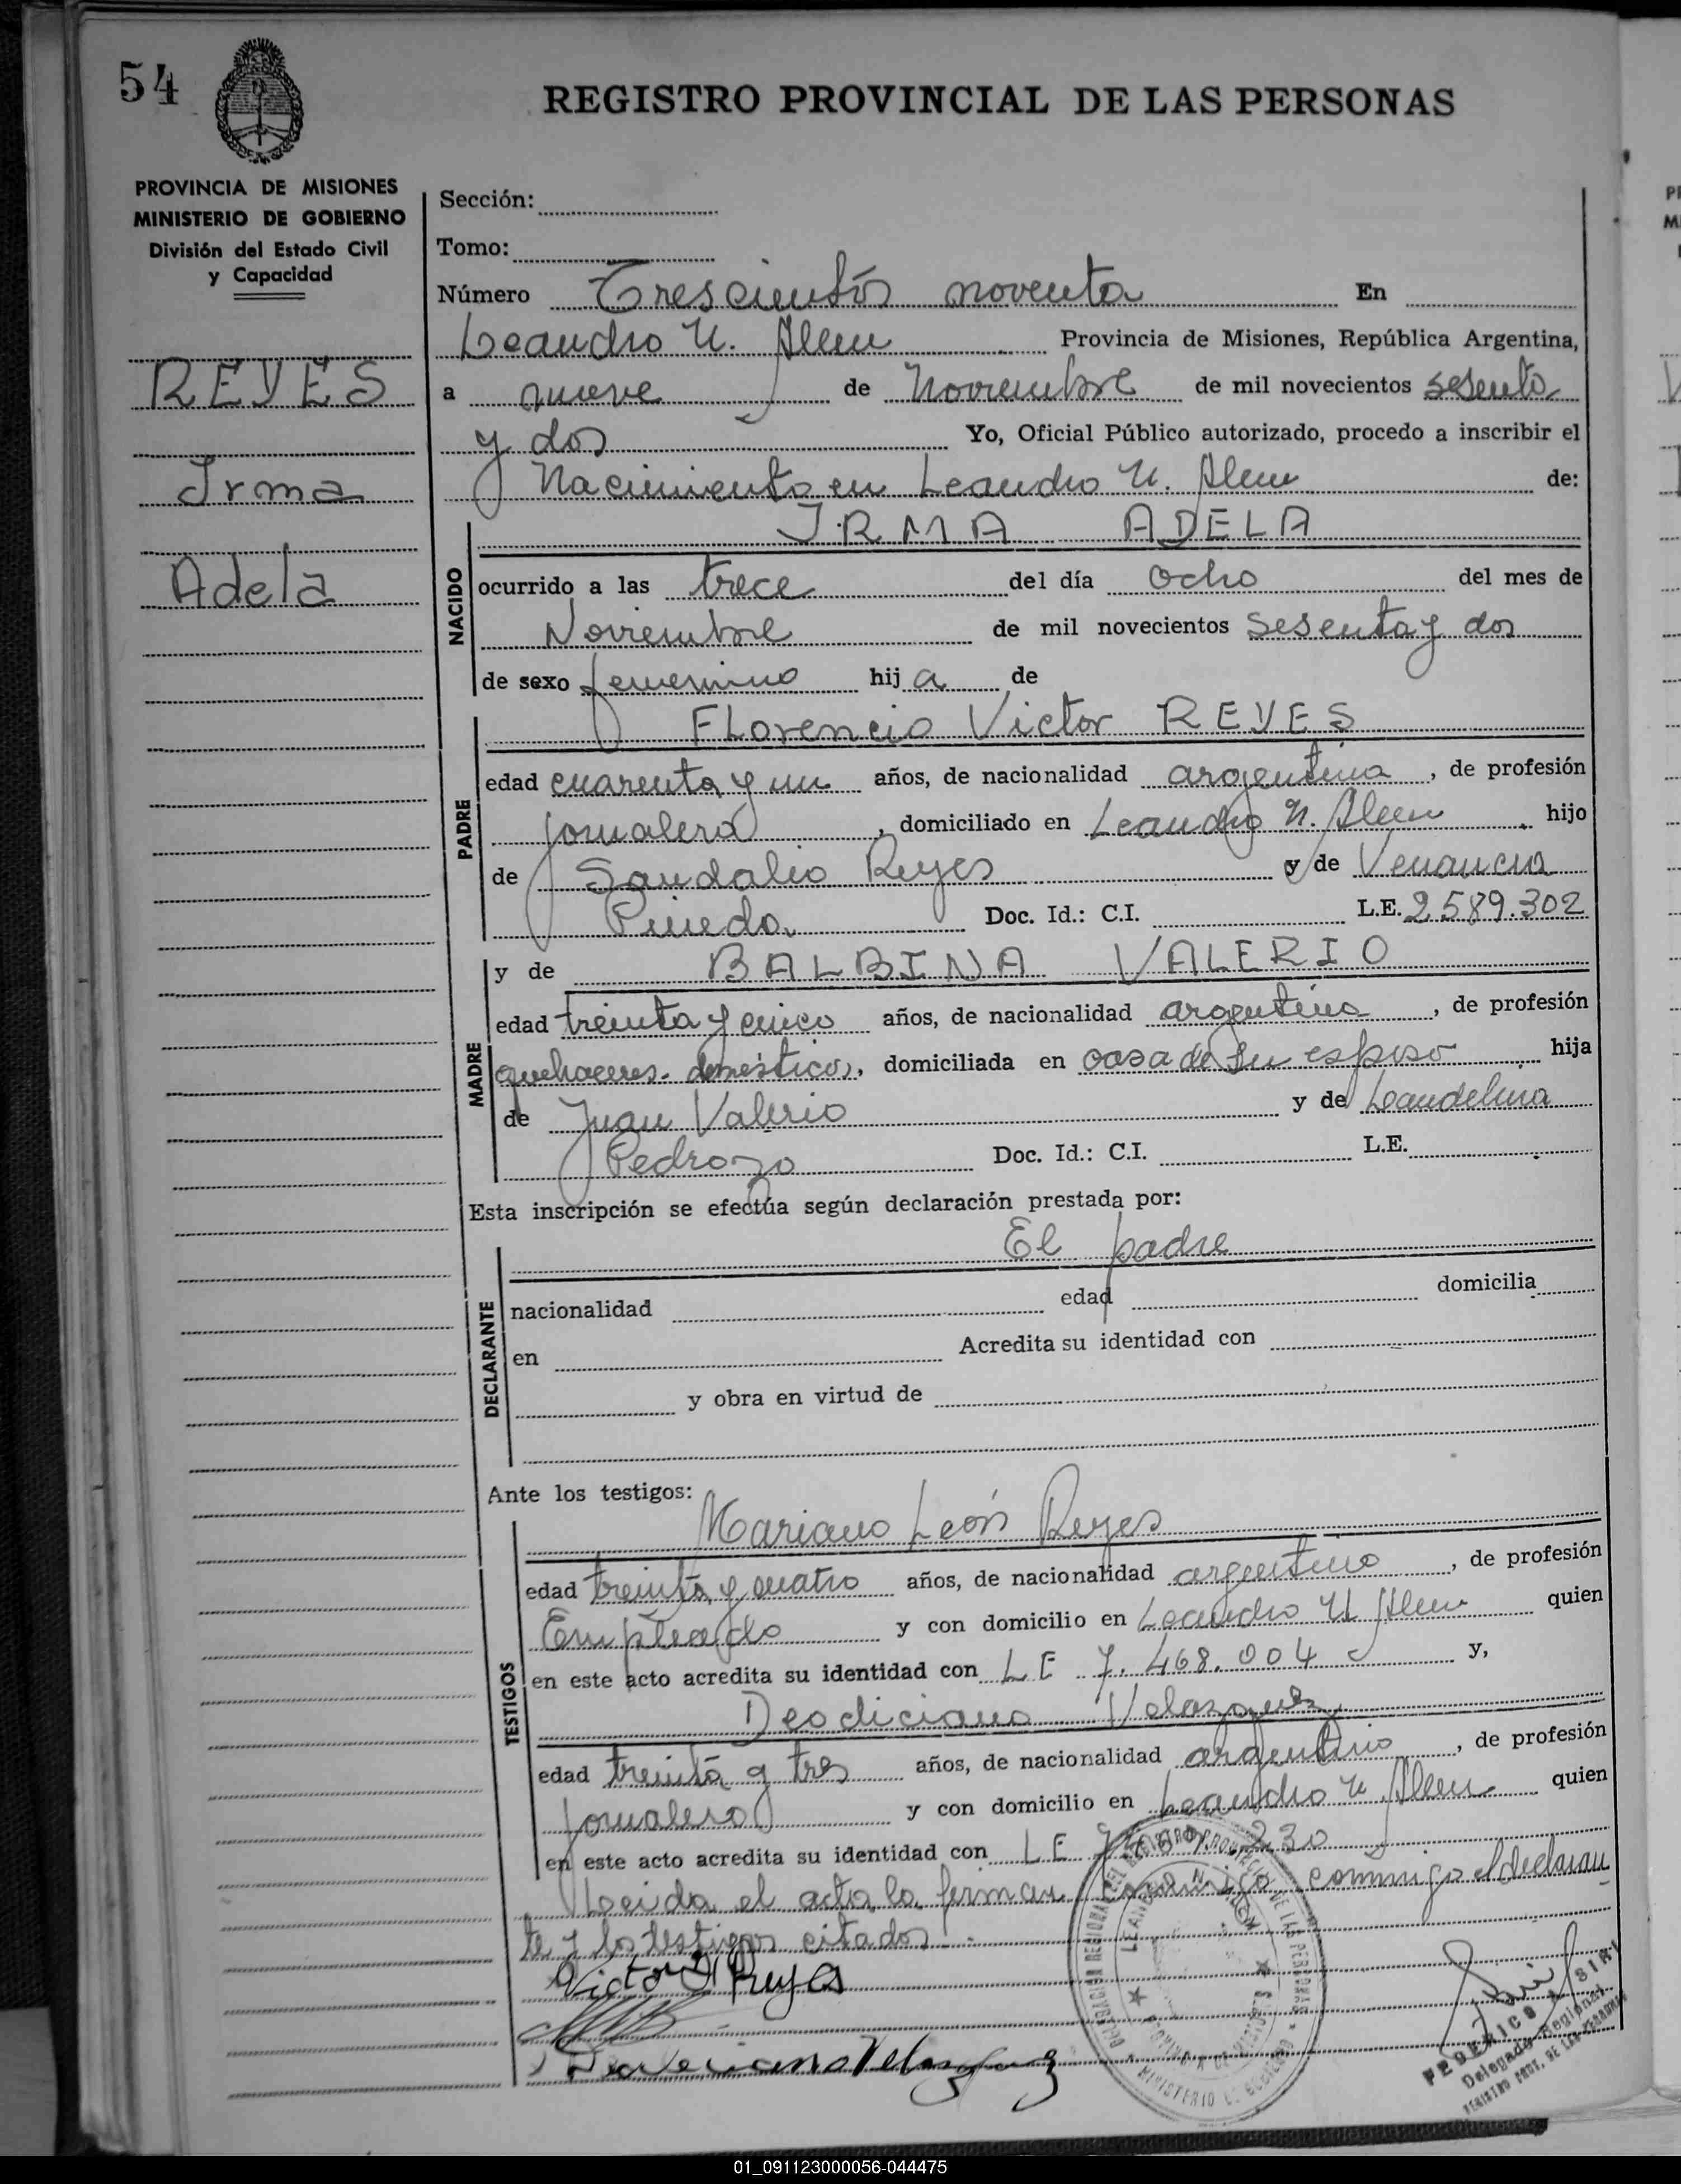 54
REGISTRO PROVINCIAL DE LAS PERSONAS
PROVINCIA DE MISIONES
MINISTERIO DE GOBIERNO
División del Estado Civil
y Capacidad
REYES
Irma
Adela
Sección:
Tomo:
Número Trescientos noventa En
Leandro N. Alem Provincia de Misiones, República Argentina,
a nueve de Noviembre de mil novecientos sesenta
y dos Yo, Oficial Público autorizado, procedo a inscribir el
Nacimiento en Leandro N. Alem de:
IRMA ADELA
NACIDO
ocurrido a las trece del día ocho del mes de
Noviembre de mil novecientos sesenta y dos
de sexo femenino hija de
Florencio Victor REYES
PADRE
edad cuarenta y un años, de nacionalidad argentina, de profesión
jornalero, domiciliado en Leandro N. Alem hijo
de Sandalio Reyes y de Venancia
Pinedo. Doc. Id.: C.I. L.E. 2.589.302
y de BALBINA VALERIO
MADRE
edad treinta y cinco años, de nacionalidad argentina, de profesión
quehaceres domésticos, domiciliada en casa de su esposo hija
de Juan Valerio y de Candelina
Pedrozo Doc. Id.: C.I. L.E.
Esta inscripción se efectúa según declaración prestada por:
El padre
DECLARANTE
nacionalidad edad domicilia
en Acredita su identidad con
y obra en virtud de
Ante los testigos:
Mariano León Reyes
TESTIGOS
edad treinta y cuatro años, de nacionalidad argentino, de profesión
Empleado y con domicilio en Leandro N Alem quien
en este acto acredita su identidad con L E 7.468.004 y,
Deodiciano Velazquez
edad treinta y tres años, de nacionalidad argentino, de profesión
jornalero y con domicilio en Leandro N Alem quien
en este acto acredita su identidad con L E 230
Leida el acta la firman conmigo el declaran
te y los testigos citados.
Victor F Reyes
Velazquez
DELEGACION REGIONAL DEL REGISTRO PROVINCIAL DE LAS PERSONAS
LEANDRO N. ALEM
MINISTERIO DE GOBIERNO
FEDERICO
Delegado Regional
REGISTRO PROV. DE LAS PERSONAS
01_091123000056-044475